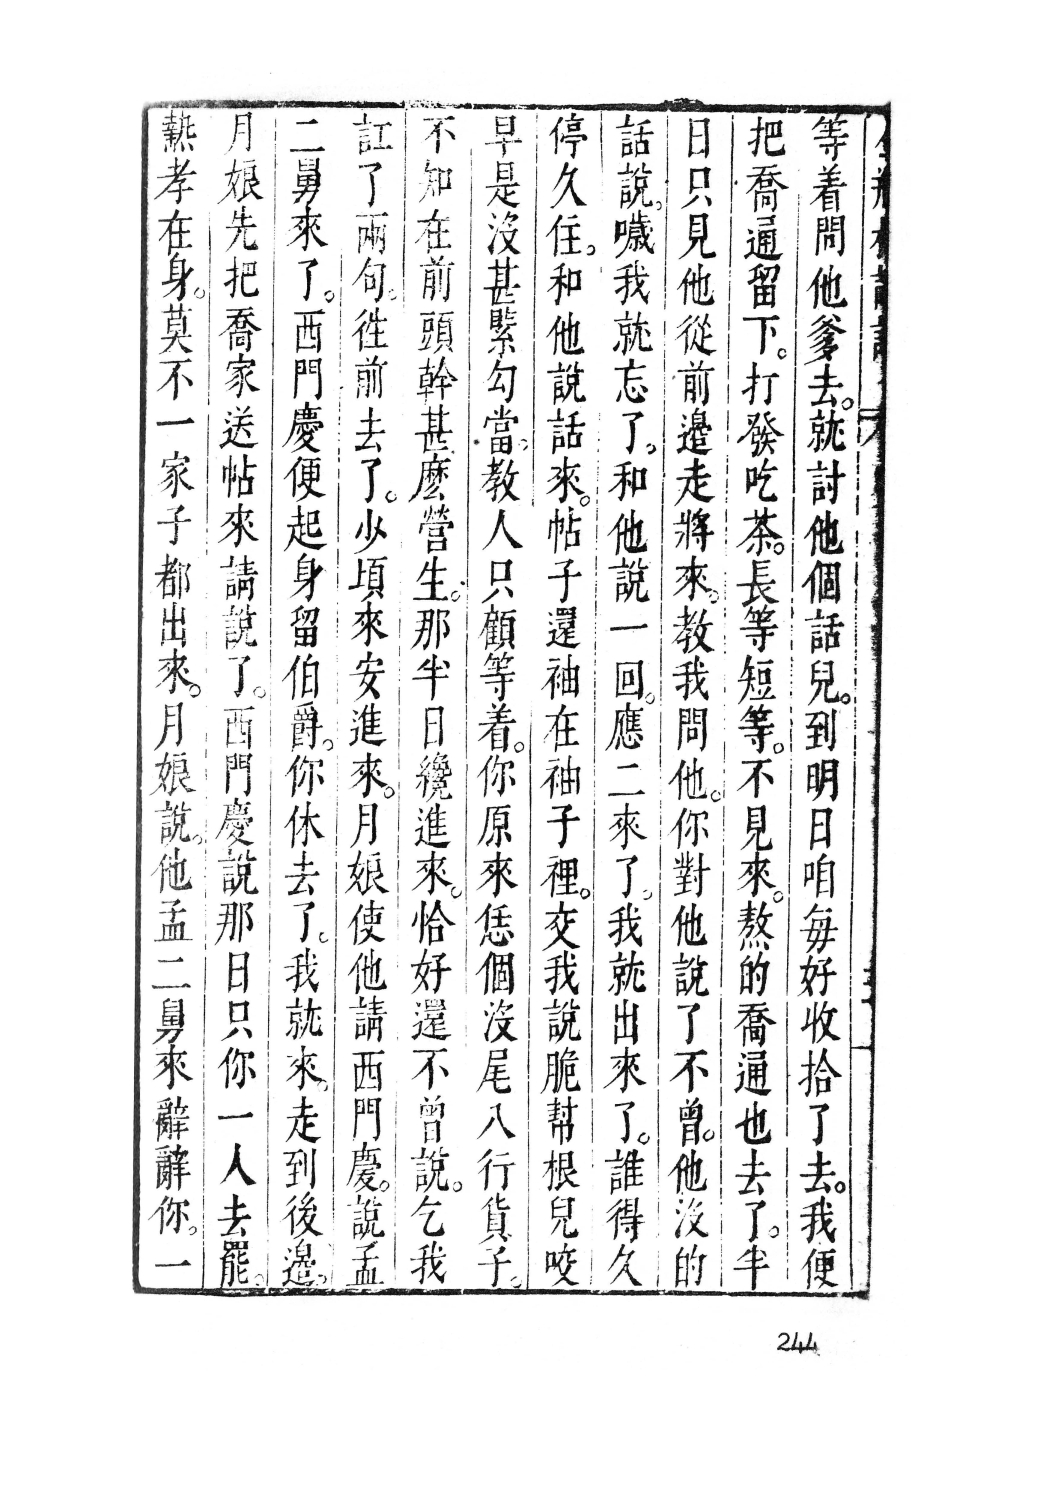 等着問他爹去。就討他個話兒。到明日咱每好收拾了去。我便
把喬通留下。打發吃茶。長等短等。不見來。熬的喬通也去了。半
日只見他從前邊走將來。教我問他。你對他說了不曾。他沒的
話說。噦我就忘了。和他說一回。應二來了。我就出來了。誰得久
停久住。和他說話來。帖子還袖在袖子裡。交我說脆幫根兒咬
早是沒甚緊勾當。教人只顧等着。你原來恁個沒尾八行貨子。
不知在前頭幹甚麽營生。那半日纔進來。恰好還不曾說。乞我
訌了兩句。徃前去了。少頃來安進來。月娘使他請西門慶。說孟
二舅來了。西門慶便起身留伯爵。你休去了。我就來。走到後邊。
月娘先把喬家送帖來請說了。西門慶說那日只你一人去罷。
熱孝在身。莫不一家子都出來。月娘說。他孟二舅來辭辭你。一
244